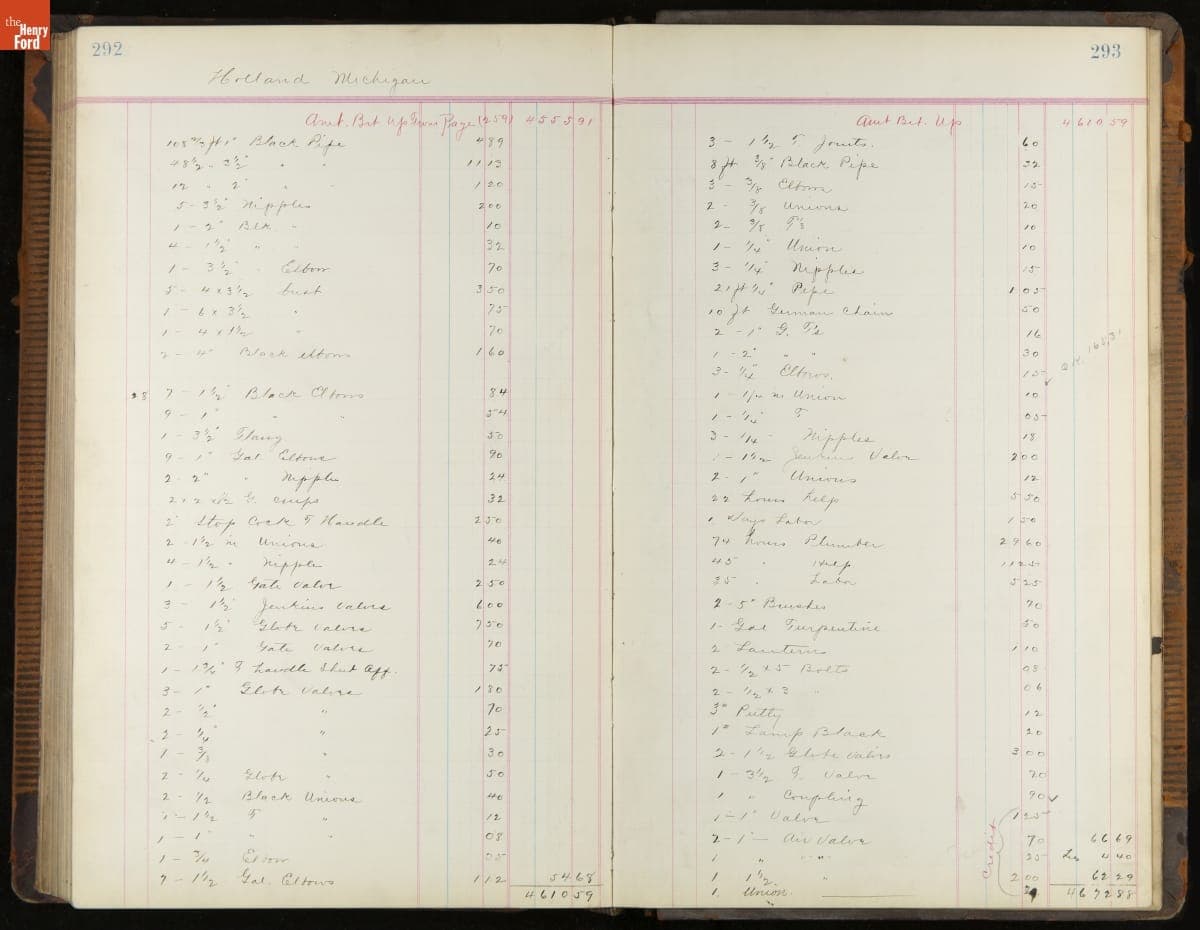 the Henry Ford
292
Holland Michigan
Amt. Bot Up From Page (259) 4555 91
1" Black Pipe 4 89
48 1/2 " 3 1/2" " 11 13
12 " 2" " " 1 20
5 - 3 1/2" Nipples 2 00
1 - 2" Blk. " 10
4 - 1 1/2" " " 32
1 - 3 1/2" " Elbow 70
5 - 4 x 3 1/2 bush 3 50
1 - 6 x 3 1/2 " 75
1 - 4 x 1 1/2 " 70
2 - 4" Black elbows 1 60
28 7 - 1 1/2" Black Elbows 84
9 - 1" " " 54
1 - 3 1/2" Flang 50
9 - 1" Gal. Elbows 90
2 - 2" " Nipples 24
G. cups 32
2" Stop Cock & Handle 2 50
2 - 1 1/2 m Unions 40
4 - 1 1/2 " Nipple 24
1 - 1 1/2 Gate Valve 2 50
3 - 1 1/2" Jenkins Valves 6 00
5 - 1 1/2" Globe Valves 7 50
2 - 1" Gate Valves 70
handle Shut Off. 75
3 - 1" Globe Valves 1 80
2 - 1/2" " 70
2 - 1/4" " 25
1 - 3/8 " 30
2 - 1/4 Globe " 50
2 - 1/2 Black Unions 40
1 1/2 T " 12
1 - 1" " " 08
1 - 3/4 Elbow 05
7 - 1 1/2 Gal. Elbows 1 12 54 68
4610 59
293
Amt Bot. Up 4610 59
3 - 1 1/2 T. Joints. 60
8 ft 3/8" Black Pipe 32
3 - 3/8 Elbows 15
2 - 3/8 Unions 20
2 - 3/8 T's 10
1 - 1/4" Union 10
3 - 1/4" Nipples 15
21 ft 1/4" Pipe 1 05
10 ft German Chain 50
2 - 1" G. T's 16
1 - 2" " " 30
3 - 1/4" Elbows. 15
1 - 1/4 m Union 10
1 - 1/4" T 05
3 - 1/4 - Nipples 18
1 1/2 Jenkins Valve 2 00
2 - 1" Unions 12
22 hours help 5 50
1 Days Labor 1 50
74 hours Plumber 29 60
45 " Help 11 25
35 " Labor 5 25
2 - 5" Brushes 70
1 - Gal Turpentine 50
2 Lanterns 1 10
2 - 1/2 x 5 Bolts 08
2 - 1/2 x 3 " 06
3# Putty 12
1# Lamp Black 20
2 - 1 1/2 Globe Valves 3 00
1 - 3 1/2 Valve
1 " Coupling 90
1 - 1" Valve 1 25
2 - 1" - Air Valve 70 66 69
1 " " 25 Les 4 40
1 1 1/2 " 2 00 62 29
1. Union. 4672 88
Credit